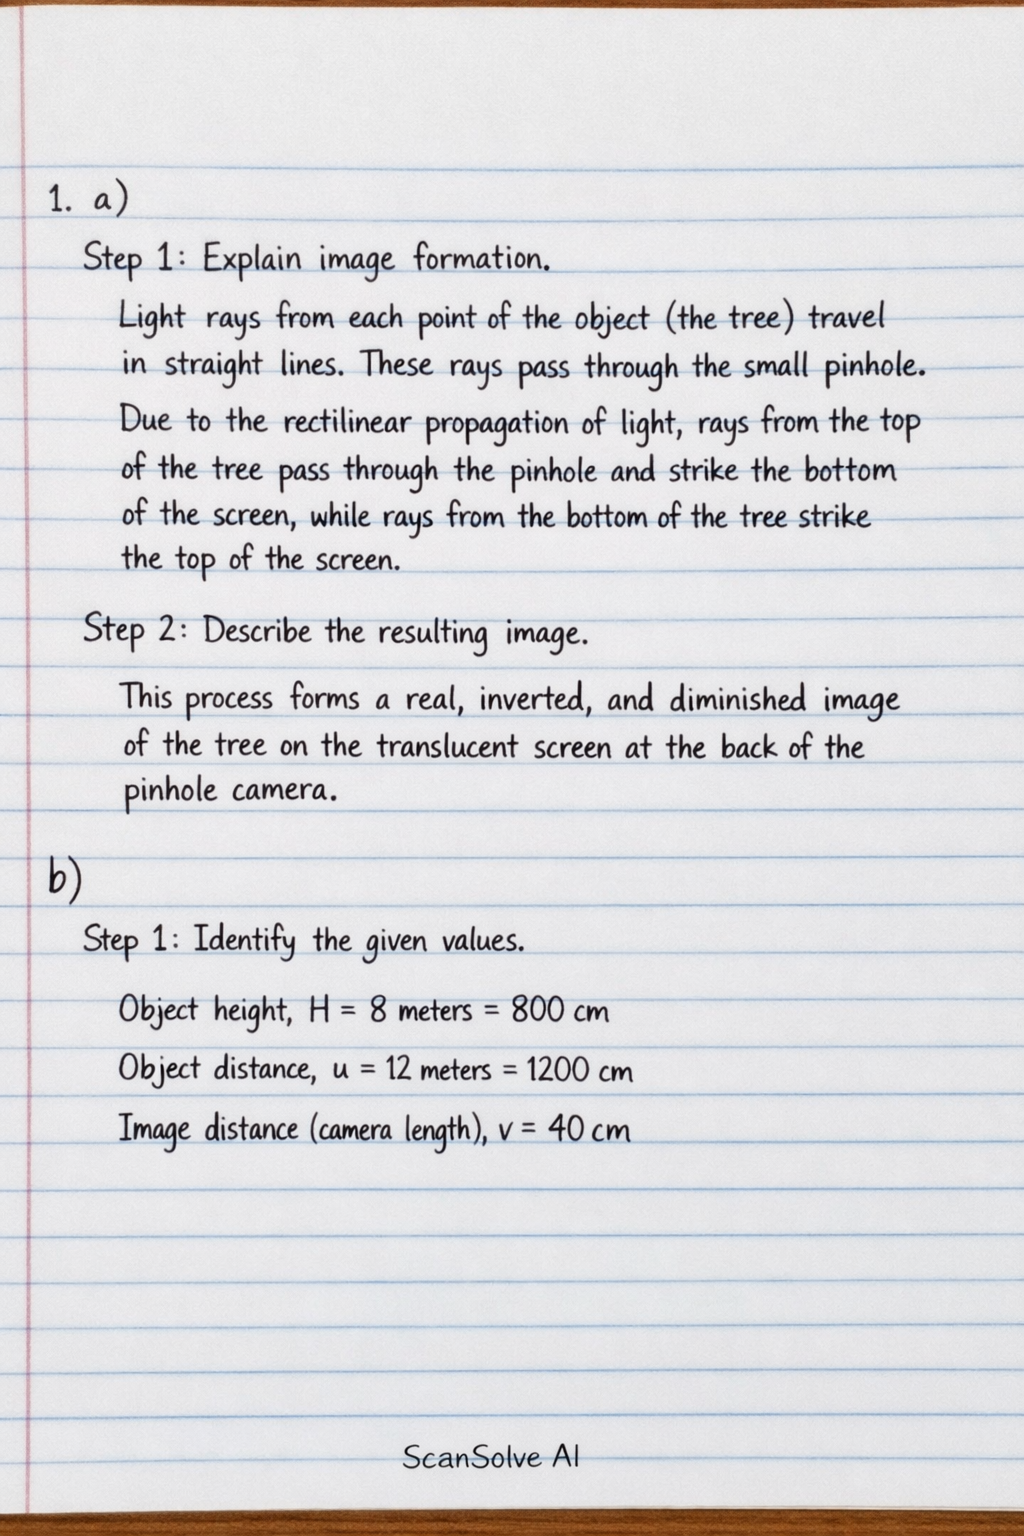 1. a)
Step 1: Explain image formation.
Light rays from each point of the object (the tree) travel
in straight lines. These rays pass through the small pinhole.
Due to the rectilinear propagation of light, rays from the top
of the tree pass through the pinhole and strike the bottom
of the screen, while rays from the bottom of the tree strike
the top of the screen.
Step 2: Describe the resulting image.
This process forms a real, inverted, and diminished image
of the tree on the translucent screen at the back of the
pinhole camera.
b)
Step 1: Identify the given values.
Object height, H = 8 meters = 800 cm
Object distance, u = 12 meters = 1200 cm
Image distance (camera length), v = 40 cm
ScanSolve AI